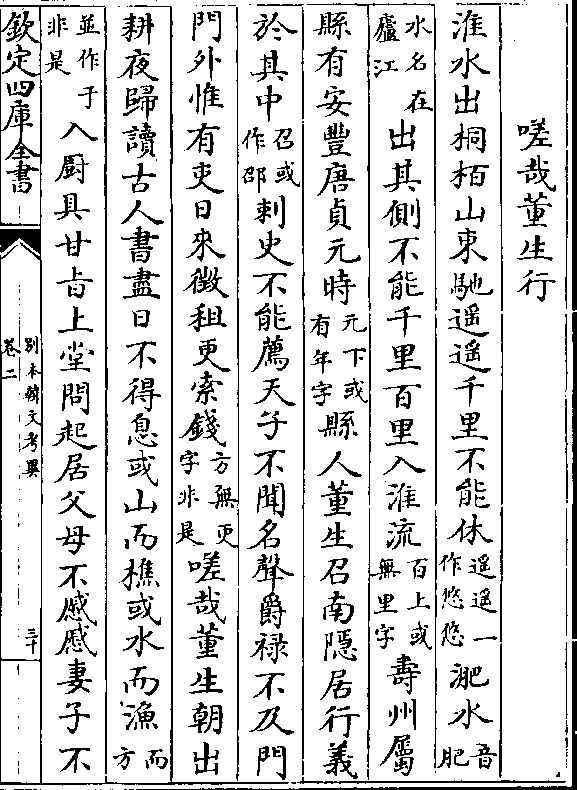 嗟哉董生行
淮水出桐栢山東馳遥遥千里不能休遥遥一作悠悠淝水音肥
水名在廬江出其側不能千里百里入淮流百上或無里字壽州屬
縣有安豐唐貞元時元下或有年字縣人董生召南隱居行義
於其中召或作邵刺史不能薦天子不聞名聲爵禄不及門
門外惟有吏日來徵租更索錢方無更字非是嗟哉董生朝出
耕夜歸讀古人書盡日不得息或山而樵或水而漁而方
並作于非是入厨具甘旨上堂問起居父母不慼慼妻子不
欽定四庫全書
别本韓文考異
卷二
三十